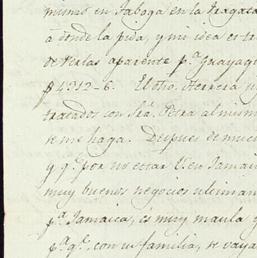 en Taboga en la fragata
á donde la pida, y mi idea es tr
de Perlas aparente p.ª Guayaq
$ 4312-6. El dho. Herrera y
tratados con Sra. Petra al mism
se me haga. Despues de much
y q.e por no estar V. en Jamai
muy buenos negocios ultimam
p.ª Jamaica, es muy maula y
p.ª q.e, con su familia, se vaya